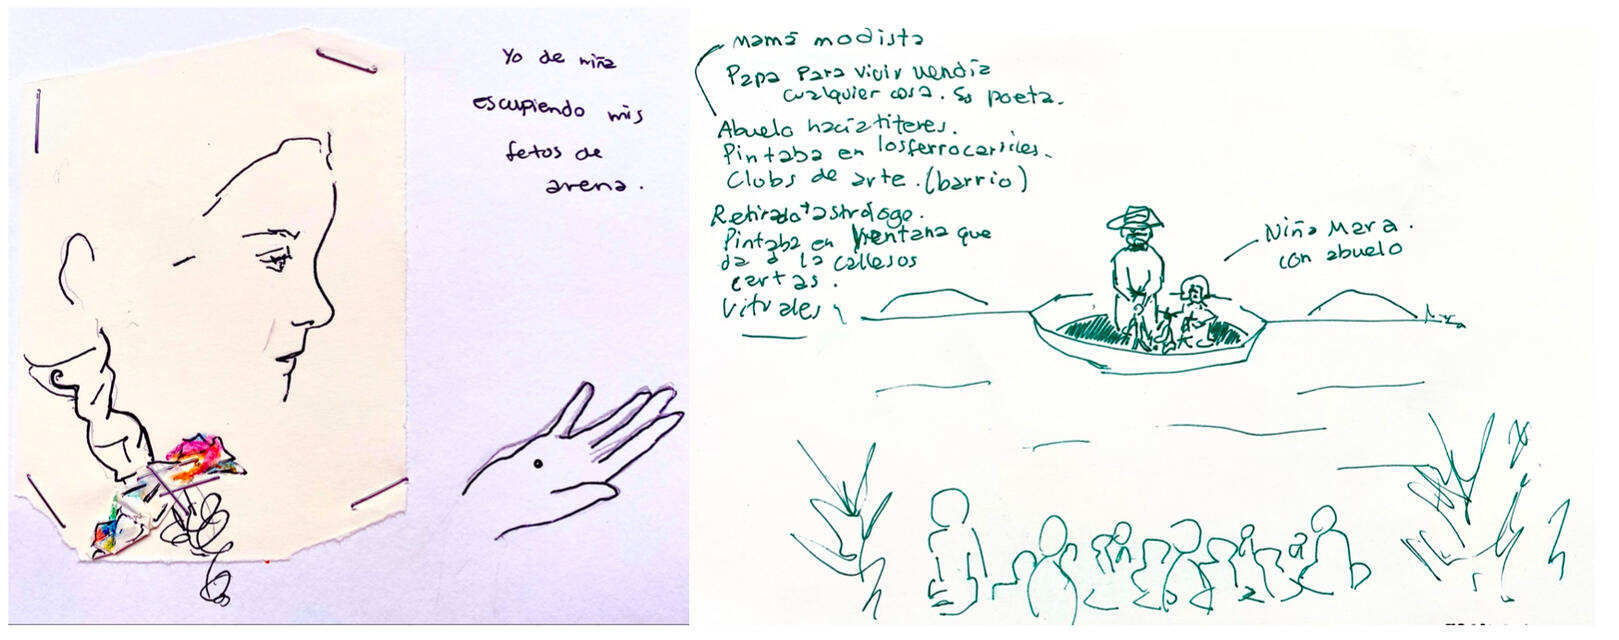 Yo de niña
escupiendo mis
fetos de
arena.
Mamá modista
Papa para vivir vendia
cualquier cosa. Es poeta.
Abuelo hacia titeres.
Pintaba en los ferrocarriles.
Clubs de arte. (barrio)
Retirado + astrólogo.
Pintaba en ventana que
da a la calle sos
cartas.
Vitrales
Niña Mara.
con abuelo